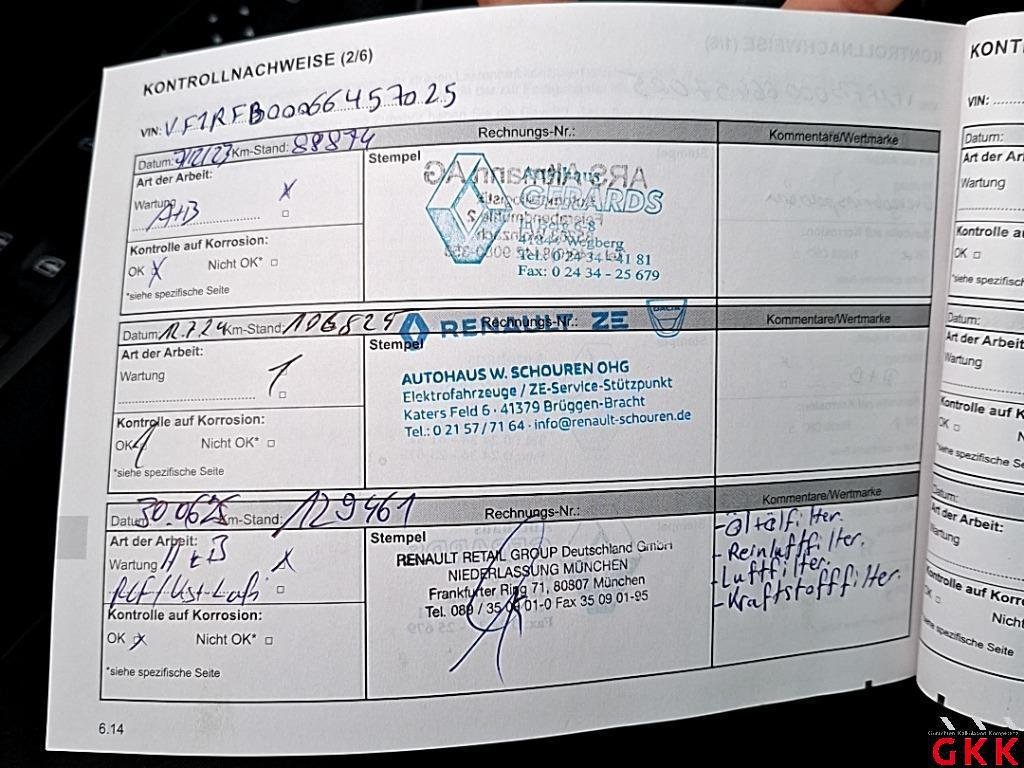 KONTROLLNACHWEISE (2/6)
VIN: VF1RFB00066457025
Datum: 7/12/23 Km-Stand: 88874 Rechnungs-Nr.: Kommentare/Wertmarke
Art der Arbeit: Stempel
Wartung x
A+B
Autohaus
GERARDS
41844 Wegberg
Tel.: 0 24 34 - 41 81
Fax: 0 24 34 - 25 679
Kontrolle auf Korrosion:
OK x Nicht OK*
*siehe spezifische Seite
Datum: 12.7.24 Km-Stand: 106825 Rechnungs-Nr.: Kommentare/Wertmarke
RENAULT ZE DACIA
Art der Arbeit: Stempel
Wartung
AUTOHAUS W. SCHOUREN OHG
Elektrofahrzeuge / ZE-Service-Stützpunkt
Katers Feld 6 · 41379 Brüggen-Bracht
Tel.: 0 21 57 / 71 64 · info@renault-schouren.de
Kontrolle auf Korrosion:
OK Nicht OK*
*siehe spezifische Seite
Datum: 30.06.25 Km-Stand: 129461 Rechnungs-Nr.: Kommentare/Wertmarke
Art der Arbeit: Stempel
Wartung A+B x
RENAULT RETAIL GROUP Deutschland GmbH
NIEDERLASSUNG MÜNCHEN
Frankfurter Ring 71, 80807 München
Tel. 089 / 35 09 01-0 Fax 35 09 01-95
- Öl+Ölfilter.
- Reinluftfilter.
- Luftfilter.
- Kraftstofffilter.
Kontrolle auf Korrosion:
OK x Nicht OK*
*siehe spezifische Seite
6.14
KONT
VIN:
Datum:
Art der Ar
Wartung
Kontrolle
OK
*siehe spezifisc
Datum:
Art der Arbeit
Wartung
Kontrolle auf K
OK
*siehe spezifische
Datum:
Art der Arbeit:
Wartung
Kontrolle auf Korro
OK Nicht
*siehe spezifische Seite
GKK